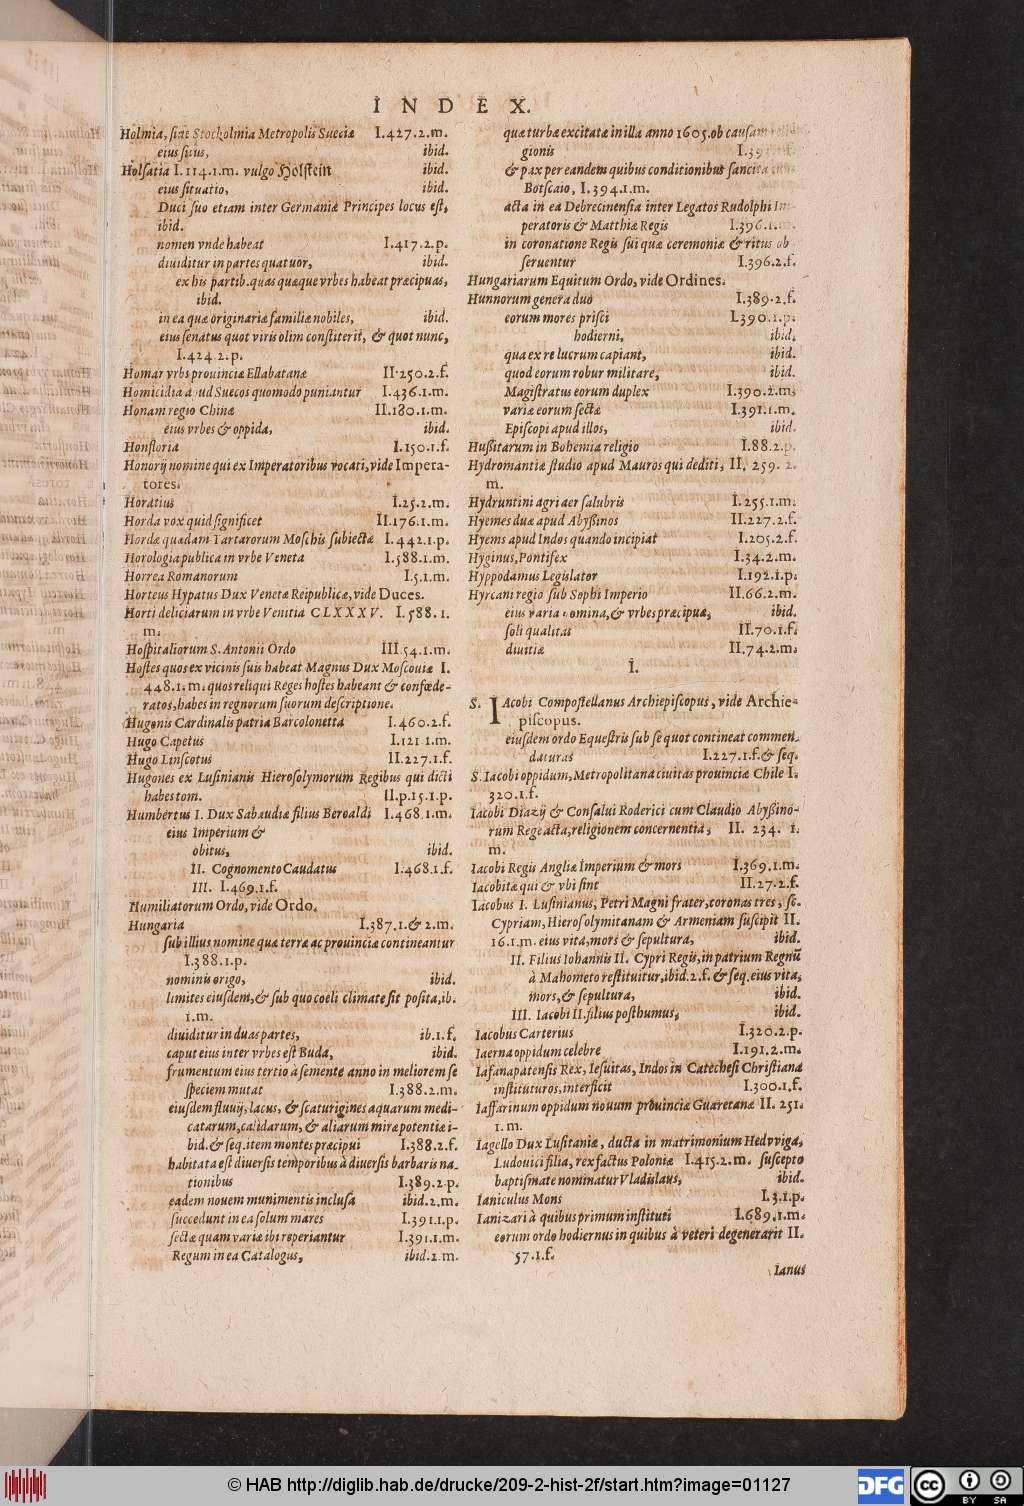 INDEX.
Holmia, ſiue Stockolmia Metropolis Sueciæ I.427.2.m.
eius ſitus, ibid.
Holſatia I.114.1.m. vulgo Holſtein ibid.
eius ſituatio, ibid.
Duci ſuo etiam inter Germaniæ Principes locus eſt,
ibid.
nomen vnde habeat I.417.2.p.
diuiditur in partes quatuor, ibid.
ex his partib. quas quæque vrbes habeat præcipuas,
ibid.
in ea quæ originariæ familiæ nobiles, ibid.
eius ſenatus quot viris olim conſtiterit, & quot nunc,
I.424.2.p.
Homar vrbs prouinciæ Ellabatanæ II.250.2.f.
Homicidia apud Suecos quomodo puniantur I.436.1.m.
Honam regio Chinæ II.180.1.m.
eius vrbes & oppida, ibid.
Honfloria I.150.1.f.
Honorij nomine qui ex Imperatoribus vocati, vide Impera-
tores.
Horatius I.25.2.m.
Horda vox quid ſignificet II.176.1.m.
Hordæ quædam Tartarorum Moſchis ſubiectæ I.442.1.p.
Horologia publica in vrbe Veneta I.588.1.m.
Horrea Romanorum I.5.1.m.
Horteus Hypatus Dux Venetæ Reipublicæ, vide Duces.
Horti deliciarum in vrbe Venitia CLXXXV. I.588.1.
m.
Hoſpitaliorum S. Antonii Ordo III.54.1.m.
Hoſtes quos ex vicinis ſuis habeat Magnus Dux Moſcouiæ I.
448.1.m. quos reliqui Reges hoſtes habeant & confœde-
ratos, habes in regnorum ſuorum deſcriptione.
Hugonis Cardinalis patria Barcolonetta I.460.2.f.
Hugo Capetus I.121.1.m.
Hugo Linſcotus II.227.1.f.
Hugones ex Luſinianis Hieroſolymorum Regibus qui dicti
habes tom. II.p.15.1.p.
Humbertus I. Dux Sabaudiæ filius Beroaldi I.468.1.m.
eius Imperium &
obitus, ibid.
II. Cognomento Caudatus I.468.1.f.
III. I.469.1.f.
Humiliatorum Ordo, vide Ordo.
Hungaria I.387.1.& 2.m.
ſub illius nomine quæ terræ ac prouinciæ contineantur
I.388.1.p.
nominis origo, ibid.
limites eiuſdem, & ſub quo cœli climate ſit poſita, ib.
1.m.
diuiditur in duas partes, ib.1.f.
caput eius inter vrbes eſt Buda, ibid.
frumentum eius tertio à ſemente anno in meliorem ſe
ſpeciem mutat I.388.2.m.
eiuſdem fluuij, lacus, & ſcaturigines aquarum medi-
catarum, calidarum, & aliarum miræ potentiæ i-
bid. & ſeq. item montes præcipui I.388.2.f.
habitata eſt diuerſis temporibus à diuerſis barbaris na-
tionibus I.389.2.p.
eadem nouem munimentis incluſa ibid.2.m.
ſuccedunt in ea ſolum mares I.391.1.p.
ſectæ quam variæ ibi reperiantur I.391.1.m.
Regum in ea Catalogus, ibid.2.m.
quæ turbæ excitatæ in illa anno 1605. ob cauſam
gionis
& pax per eandem quibus conditionibus ſancita
Botſcaio, I.394.1.m.
acta in ea Debrecinenſia inter Legatos Rudolphi Im-
peratoris & Matthiæ Regis I.396.1.m.
in coronatione Regis ſui quæ ceremoniæ & ritus ob
ſeruentur I.396.2.f.
Hungariarum Equitum Ordo, vide Ordines.
Hunnorum genera duo I.389.2.f.
eorum mores priſci I.390.1.p.
hodierni, ibid.
qua ex re lucrum capiant, ibid.
quod eorum robur militare, ibid.
Magiſtratus eorum duplex I.390.2.m.
variæ eorum ſectæ I.391.1.m.
Epiſcopi apud illos, ibid.
Hußitarum in Bohemia religio I.88.2.p.
Hydromantiæ ſtudio apud Mauros qui dediti, II. 259. 2.
m.
Hydruntini agri aer ſalubris I.255.1.m.
Hyemes duæ apud Abyßinos II.227.2.f.
Hyems apud Indos quando incipiat I.205.2.f.
Hyginus, Pontifex I.34.2.m.
Hyppodamus Legislator I.192.1.p.
Hyrcani regio ſub Sophi Imperio II.66.2.m.
eius varia nomina, & vrbes præcipuæ, ibid.
ſoli qualitas II.70.1.f.
diuitiæ II.74.2.m.
I.
S. IAcobi Compoſtellanus Archiepiſcopus, vide Archie-
piſcopus.
eiuſdem ordo Equeſtris ſub ſe quot contineat commen-
daturas I.227.1.f.& ſeq.
S. Iacobi oppidum, Metropolitana ciuitas prouinciæ Chile I.
320.1.f.
Iacobi Diazij & Conſalui Roderici cum Claudio Abyßino-
rum Rege acta, religionem concernentia, II. 234. 1.
m.
Iacobi Regis Angliæ Imperium & mors I.369.1.m.
Iacobitæ qui & vbi ſint II.27.2.f.
Iacobus I. Luſinianus, Petri Magni frater, coronas tres, ſc.
Cypriam, Hieroſolymitanam & Armeniam ſuſcipit II.
16.1.m. eius vita, mors & ſepultura, ibid.
II. Filius Iohannis II. Cypri Regis, in patrium Regnũ
à Mahometo reſtituitur, ibid.2.f. & ſeq. eius vita,
mors, & ſepultura, ibid.
III. Iacobi II. filius poſthumus, ibid.
Iacobus Carterius I.320.2.p.
Iaerna oppidum celebre I.191.2.m.
Iafanapatenſis Rex, Ieſuitas, Indos in Catecheſi Chriſtiana
inſtituturos, interficit I.300.1.f.
Iaffarinum oppidum nouum prouinciæ Guaretanæ II. 251.
1.m.
Iagello Dux Luſitaniæ, ducta in matrimonium Hedvviga,
Ludouici filia, rex factus Poloniæ I.415.2.m. ſuſcepto
baptiſmate nominatur Vladislaus, ibid.
Ianiculus Mons I.3.1.p.
Ianizari à quibus primum inſtituti I.689.1.m.
eorum ordo hodiernus in quibus à veteri degenerarit II.
57.1.f.
Ianus
© HAB http://diglib.hab.de/drucke/209-2-hist-2f/start.htm?image=01127
DFG
cc
BY SA